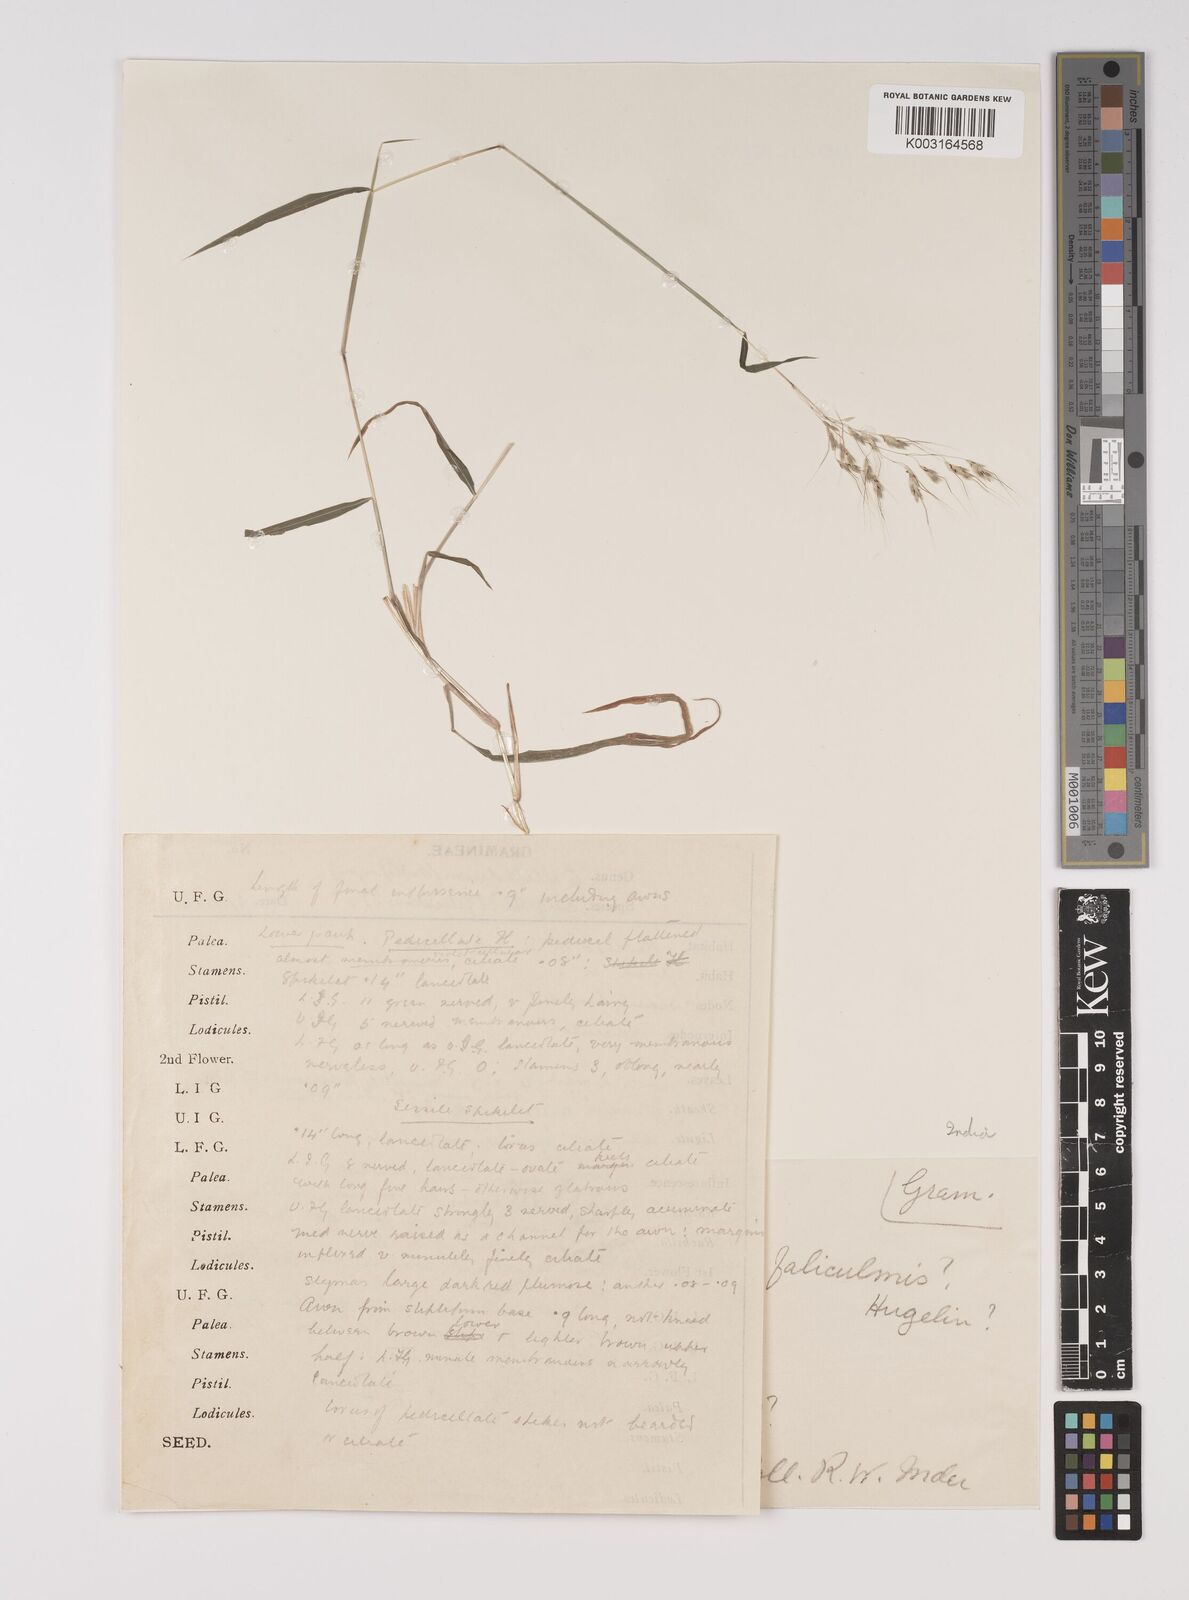 ROYAL BOTANIC GARDENS KEW
K003164568
GRAMINEAE.
U. F. G. Length of final inflorescence ·9" including awns
Palea. Lower part. Pedicellate H: pedicel flattened
Stamens. almost membranous, ciliate ·08";
Spikelet ·14" lanceolate
Pistil. L.I.G. 11 green nerved, v finely hairy
Lodicules. U.I.G 5 nerved membranous, ciliate
L.F.G as long as U.I.G. lanceolate, very membranous
2nd Flower. nerveless, U.F.G. 0; Stamens 3, oblong, nearly
L. I G ·09"
U. I G. Sessile spikelet
L. F. G. ·14" long, lanceolate, torus ciliate
L.I.G 8 nerved, lanceolate-ovate keels ciliate
Palea. with long fine hairs - otherwise glabrous
Stamens. U.I.G lanceolate strongly 3 nerved, sharply acuminate
Pistil. med nerve raised as a channel for the awn: margins
Lodicules. inflexed v. minutely finely ciliate
U. F. G. stigmas large dark red plumose: anther ·08-·09
Palea. Awn from stipiform base ·9 long, not kneed
between brown lower & lighter brown upper
Stamens. half: L.F.G. minute membranous narrowly
Pistil. lanceolate
Lodicules. torus of pedicellate spikes not bearded
SEED. or ciliate
India
Gram.
faliculmis?
Hugelin?
?
ll. R. W. Inder
inches
centimetres
Density
Don Williams
M001006
Royal Botanic Gardens
Kew
0 1 2 3 4 5 6 7 8 9 10
cm
copyright reserved